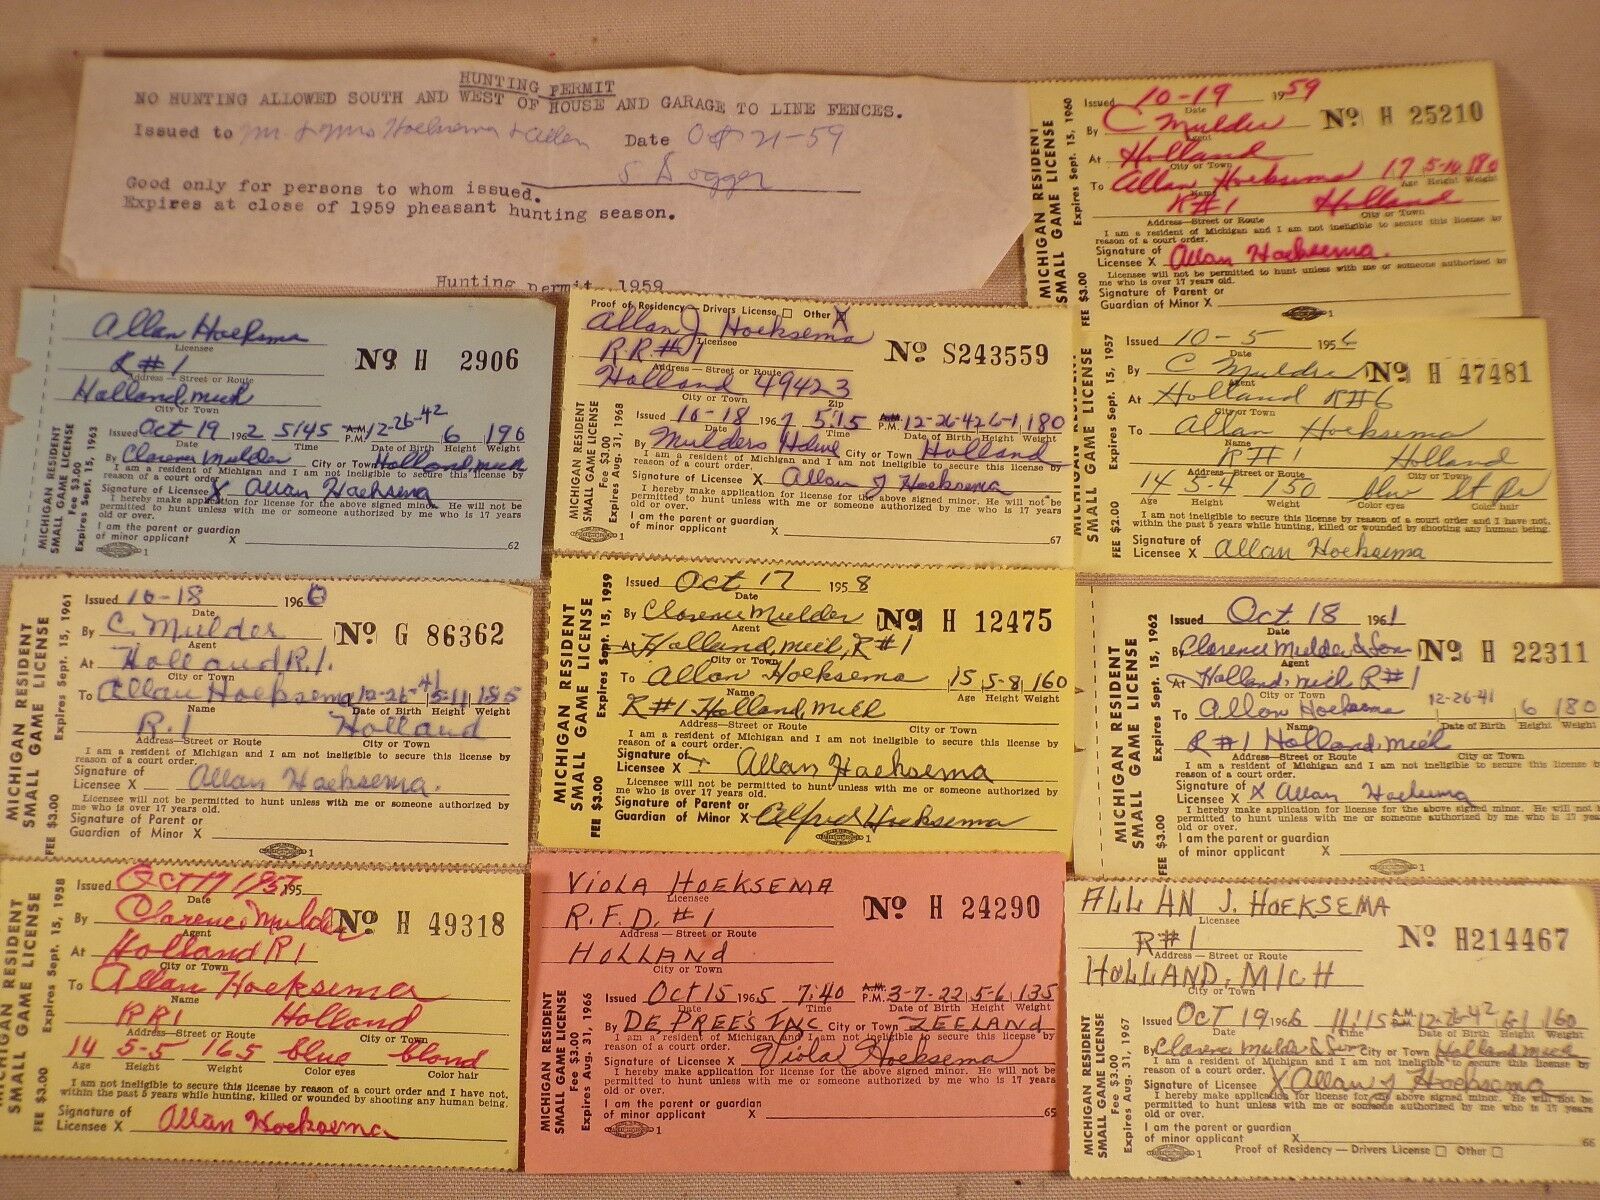 HUNTING PERMIT
NO HUNTING ALLOWED SOUTH AND WEST OF HOUSE AND GARAGE TO LINE FENCES.
Issued to Mr & Mrs Hoeksema & Allen Date Oct 21-59
Good only for persons to whom issued.
Expires at close of 1959 pheasant hunting season.
Hunting permit 1959
MICHIGAN RESIDENT
SMALL GAME LICENSE
FEE $3.00 Expires Sept. 15, 1960
Issued 10-19 1959
Date
By C Mulder Nº H 25210
Agent
At Holland
City or Town
To Allan Hoeksema 17 5-10 180
Name Age Height Weight
R#1 Holland
Address—Street or Route City or Town
I am a resident of Michigan and I am not ineligible to secure this license by
reason of a court order.
Signature of
Licensee X Allan Hoeksema.
Licensee will not be permitted to hunt unless with me or someone authorized by
me who is over 17 years old.
Signature of Parent or
Guardian of Minor X
MICHIGAN RESIDENT
SMALL GAME LICENSE
Fee $3.00
Expires Sept. 15, 1963
Allan Hoeksema
Licensee
R#1 Nº H 2906
Address — Street or Route
Holland, Mich
City or Town
Issued Oct 19 1962 5:45 A.M. P.M. 12-26-42 6 190
Date Time Date of Birth Height Weight
By Clarence Mulder City or Town Holland Mich
I am a resident of Michigan and I am not ineligible to secure this license by
reason of a court order.
Signature of Licensee X Allan Hoeksema
I hereby make application for license for the above signed minor. He will not be
permitted to hunt unless with me or someone authorized by me who is 17 years
old or over.
I am the parent or guardian
of minor applicant X
1 62
Proof of Residency — Drivers License Other X
Allan J Hoeksema
Licensee
RR#1 Nº S243559
Address — Street or Route
Holland 49423
City or Town Zip
MICHIGAN RESIDENT
SMALL GAME LICENSE
Fee $3.00
Expires Aug. 31, 1968
Issued 10-18 1967 5:15 A.M. P.M. 12-26-42 6-1 180
Date Time Date of Birth Height Weight
By Mulders City or Town Holland
I am a resident of Michigan and I am not ineligible to secure this license by
reason of a court order.
Signature of Licensee X Allan J Hoeksema
I hereby make application for the above signed minor. He will not be
permitted to hunt unless with me or someone authorized by me who is 17 years
old or over.
I am the parent or guardian
of minor applicant X
1 67
MICHIGAN RESIDENT
SMALL GAME LICENSE
FEE $2.00 Expires Sept. 15, 1957
10-5 1956
Date
By C Mulder Nº H 47481
Agent
At Holland R#6
City or Town
To Allan Hoeksema
Name
R#1 Holland
Address—Street or Route City or Town
14 5-4 150 blue lt Br
Age Height Weight Color eyes Color hair
I am not ineligible to secure this license by reason of a court order and I have not,
within the past 5 years while hunting, killed or wounded by shooting any human being.
Signature of
Licensee X Allan Hoeksema
MICHIGAN RESIDENT
SMALL GAME LICENSE
FEE $3.00 Expires Sept. 15, 1961
Issued 10-18 1960
Date
By C. Mulder Nº G 86362
Agent
At Holland R1.
City or Town
To Allan Hoeksema 12-26-41 5-11 185
Name Date of Birth Height Weight
R.1 Holland
Address—Street or Route City or Town
I am a resident of Michigan and I am not ineligible to secure this license by
reason of a court order.
Signature of
Licensee X Allan Hoeksema.
Licensee will not be permitted to hunt unless with me or someone authorized by
me who is over 17 years old.
Signature of Parent or
Guardian of Minor X
1
MICHIGAN RESIDENT
SMALL GAME LICENSE
FEE $3.00 Expires Sept. 15, 1959
Issued Oct 17 1958
Date
By Clarence Mulder Nº H 12475
Agent
At Holland, Mich, R#1
City or Town
To Allan Hoeksema 15 5-8 160
Name Age Height Weight
R#1 Holland, Mich
Address—Street or Route City or Town
I am a resident of Michigan and I am not ineligible to secure this license by
reason of a court order.
Signature of
Licensee X Allan Hoeksema
Licensee will not be permitted to hunt unless with me or someone authorized by
me who is over 17 years old.
Signature of Parent or
Guardian of Minor X Alfred Hoeksema
1
MICHIGAN RESIDENT
SMALL GAME LICENSE
FEE $3.00 Expires Sept. 15, 1962
Issued Oct 18 1961
Date
By Clarence Mulder & Son Nº H 22311
Agent
Holland, Mich R#1
City or Town
To Allan Hoeksema 12-26-41 6 180
Name Date of Birth Height Weight
R#1 Holland, Mich
Address—Street or Route City or Town
I am a resident of Michigan and I am not ineligible to secure this license
reason of a court order.
Signature of
Licensee X Allan Hoeksema
I hereby make application for license for the above signed minor. He will not
permitted to hunt unless with me or someone authorized by me who is 17 years
old or over.
I am the parent or guardian
of minor applicant X
1
MICHIGAN RESIDENT
SMALL GAME LICENSE
FEE $3.00 Expires Sept. 15, 1958
Issued Oct 17 1957 195
By Clarence Mulder Nº H 49318
Agent
At Holland R1
City or Town
To Allan Hoeksema
Name
RR1 Holland
Address—Street or Route City or Town
14 5-5 165 blue blond
Age Height Weight Color eyes Color hair
I am not ineligible to secure this license by reason of a court order and I have not,
within the past 5 years while hunting, killed or wounded by shooting any human being.
Signature of
Licensee X Allan Hoeksema
VIOLA HOEKSEMA
Licensee
R.F.D. #1 Nº H 24290
Address — Street or Route
HOLLAND
City or Town
MICHIGAN RESIDENT
SMALL GAME LICENSE
Fee $3.00
Expires Aug. 31, 1966
Issued Oct 15 1965 7:40 A.M. P.M. 3-7-22 5-6 135
Date Time Date of Birth Height Weight
By DE PREE'S INC City or Town ZEELAND
I am a resident of Michigan and I am not ineligible to secure this license by
reason of a court order.
Signature of Licensee X Viola Hoeksema
I hereby make application for license for the above signed minor. He will not be
permitted to hunt unless with me or someone authorized by me who is 17 years
old or over.
I am the parent or guardian
of minor applicant X
1 65
ALLAN J. HOEKSEMA
Licensee
R#1 Nº H214467
Address — Street or Route
HOLLAND, MICH
City or Town
MICHIGAN RESIDENT
SMALL GAME LICENSE
Fee $3.00
Expires Aug. 31, 1967
Issued OCT 19 1966 11:15 A.M. P.M. 12-26-42 6-1 160
Date Time Date of Birth Height Weight
By Clarence Mulder & Sons City or Town Holland Mich
I am a resident of Michigan and I am not ineligible to secure this license by
reason of a court order.
Signature of Licensee X Allan J Hoeksema
I hereby make application for license for the above signed minor. He will not be
permitted to hunt unless with me or someone authorized by me who is 17 years
old or over.
I am the parent or guardian
of minor applicant X
1 Proof of Residency — Drivers License Other 66